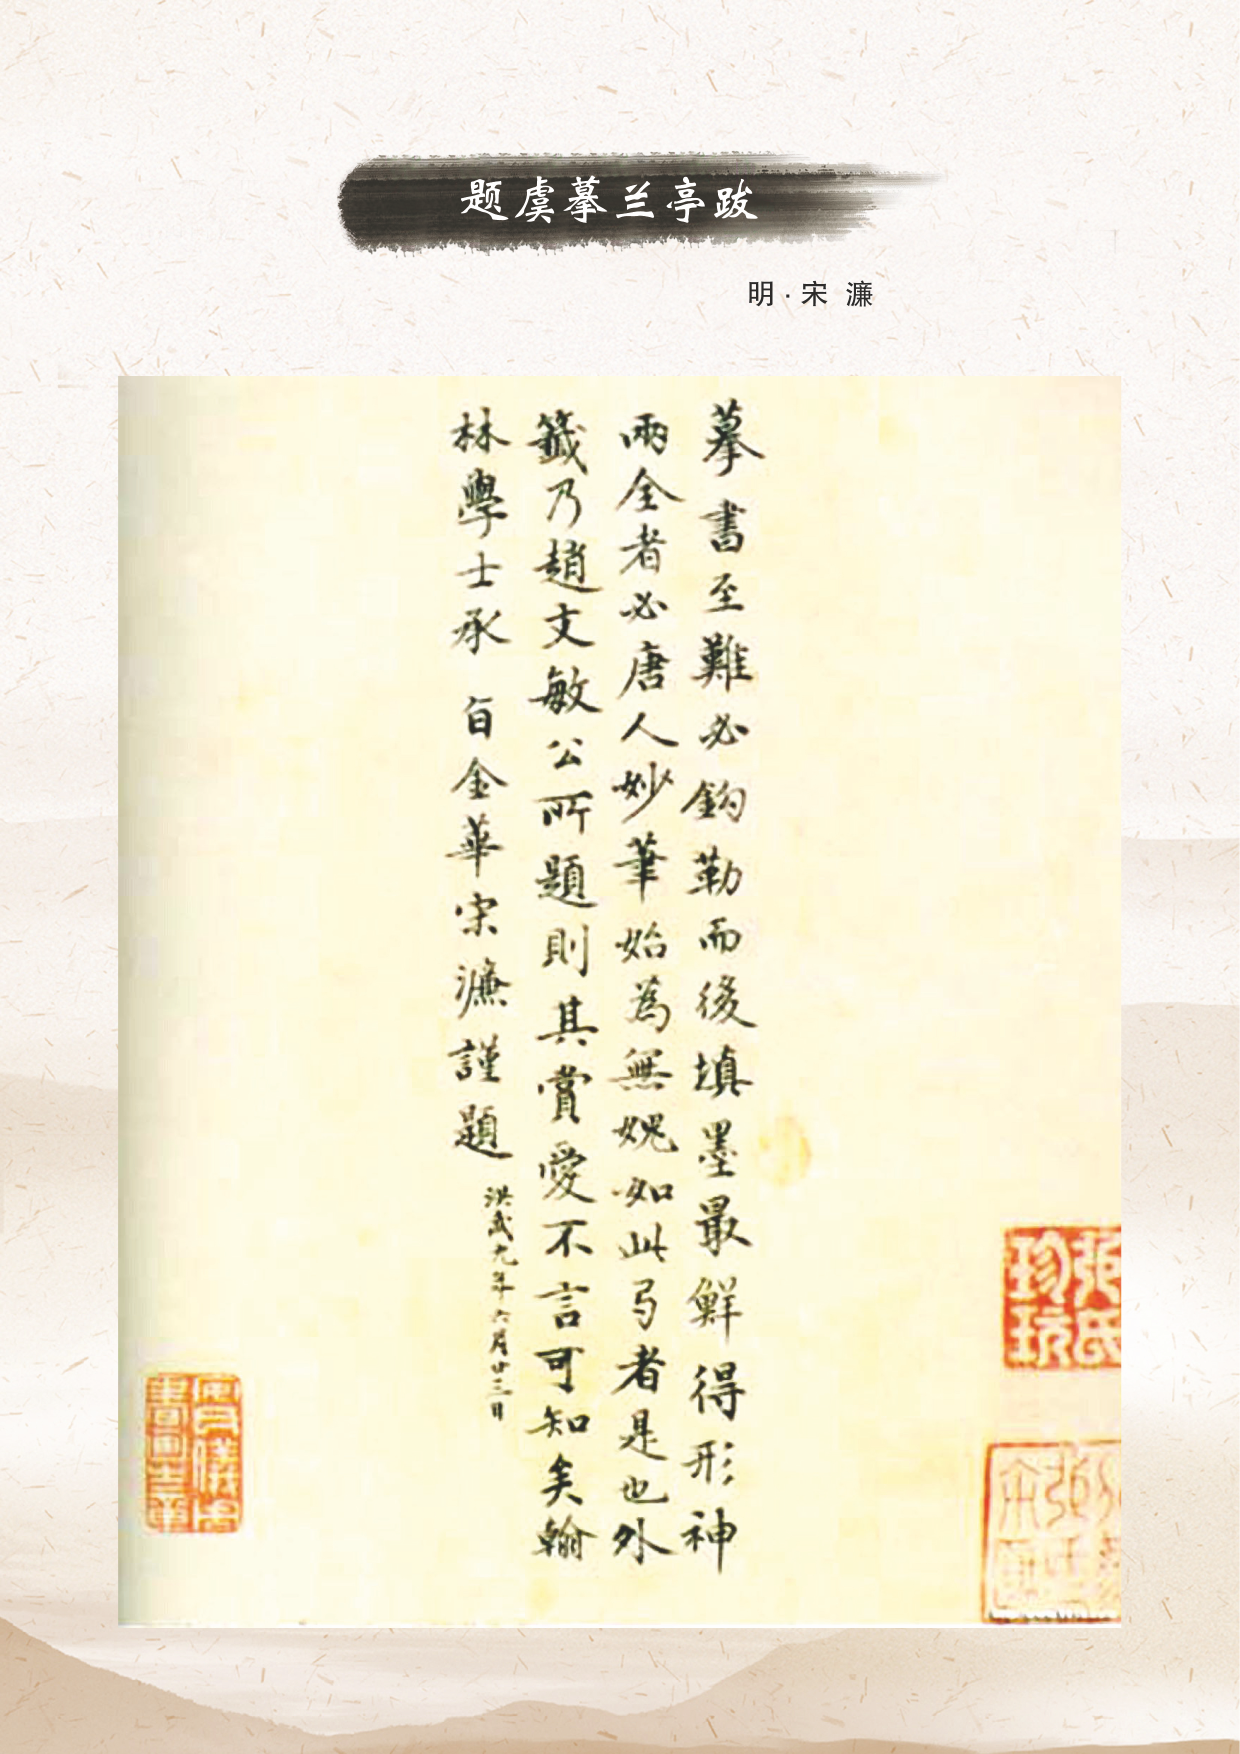 题虞摹兰亭跋
明·宋 濂
摹書至難必鈎勒而後填墨最鮮得形神
兩全者必唐人妙筆始為無媿如此弓者是也外
籤乃趙文敏公所題則其賞愛不言可知矣翰
林學士承 旨金華宋濂謹題
洪武九年六月廿三日
珍玩